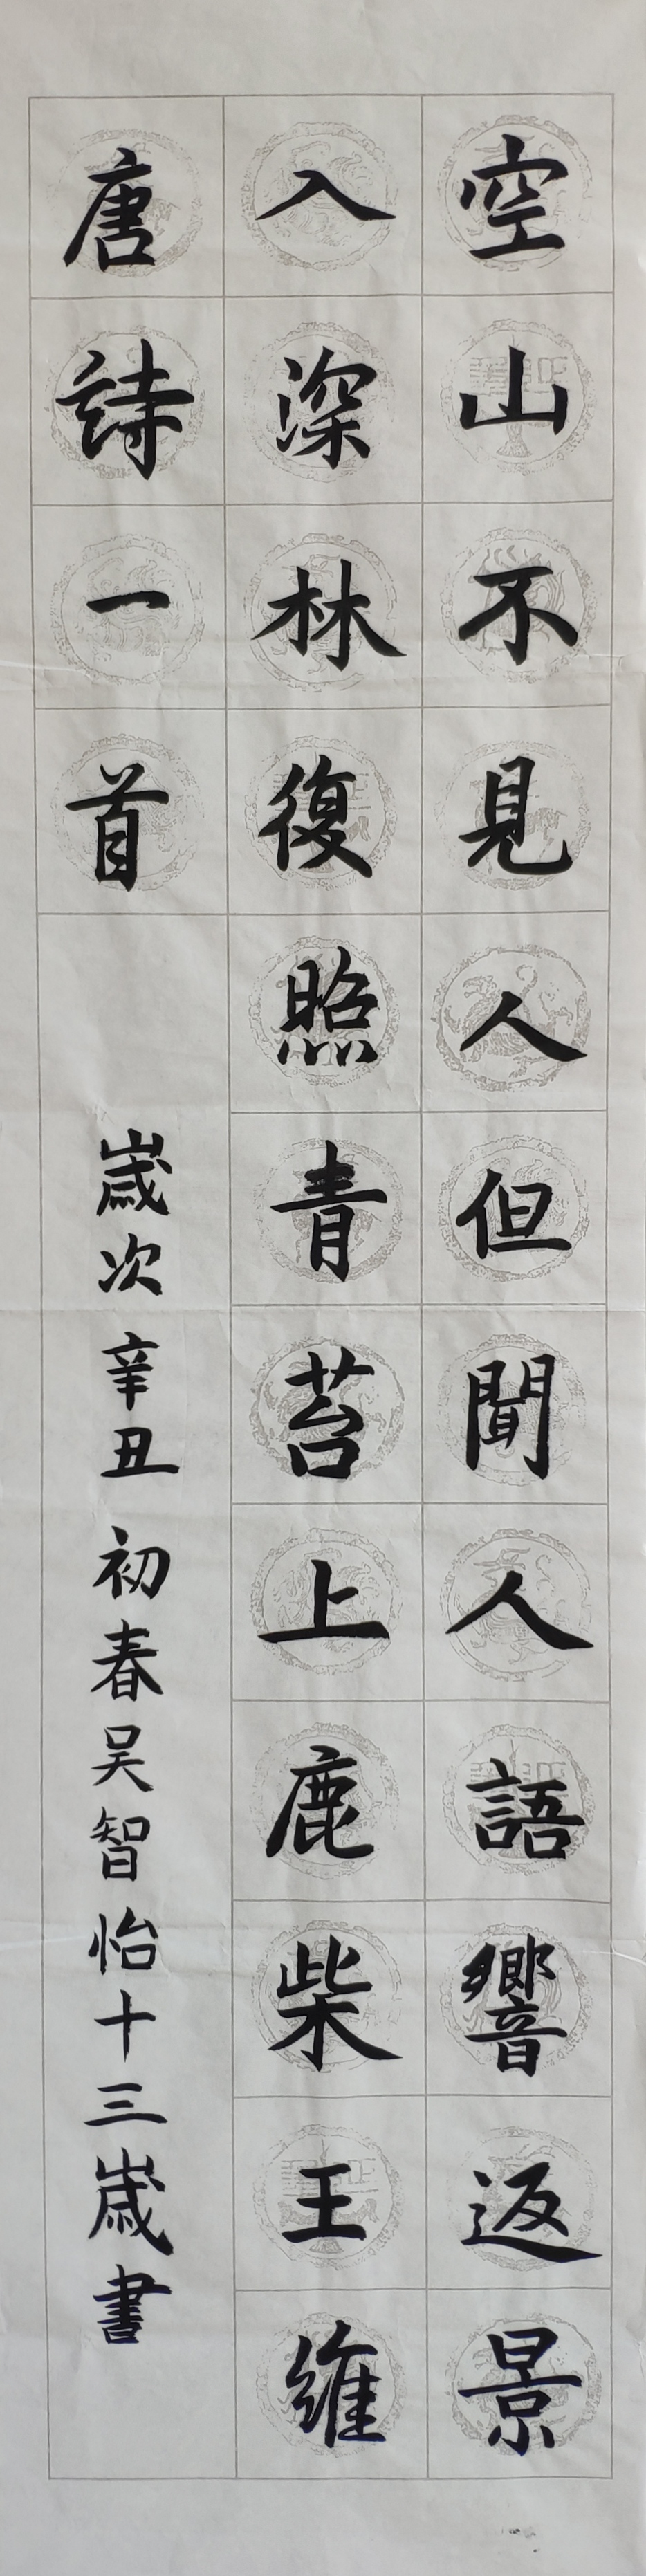 空山不見人但聞人語響返景
入深林復照青苔上鹿柴王維
唐詩一首
歲次辛丑初春吴智怡十三歲書